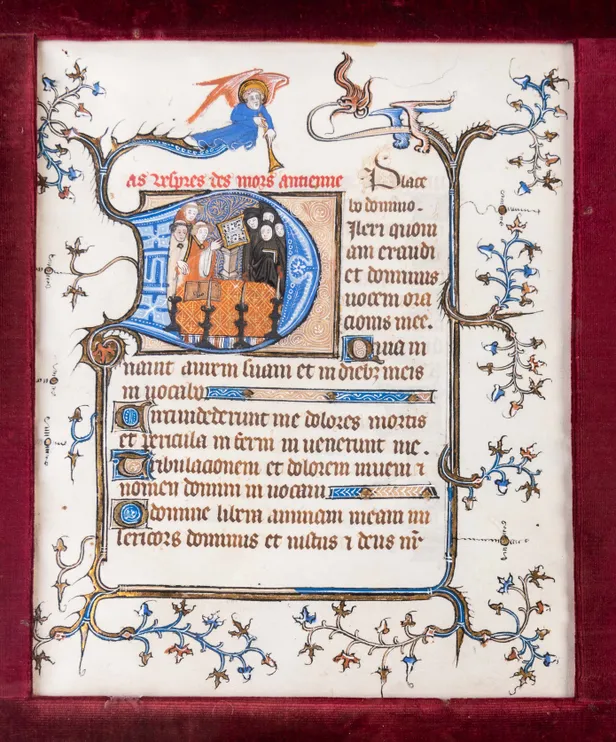 as vespres des mors antienne
Place
bo domino.
Dilexi quoni
am exaudi
et dominus
uocem ora
cionis mee.
Quia in
nauit aurem suam et in diebꝫ meis
in uocabo
Circundederunt me dolores mortis
et pericula in ferni in uenerunt me.
Tribulacionem et dolorem inueni ⁊
nomen domini in uocaui
O domine libera animam meam mi
sericors dominus et iustus ⁊ deus nr̄